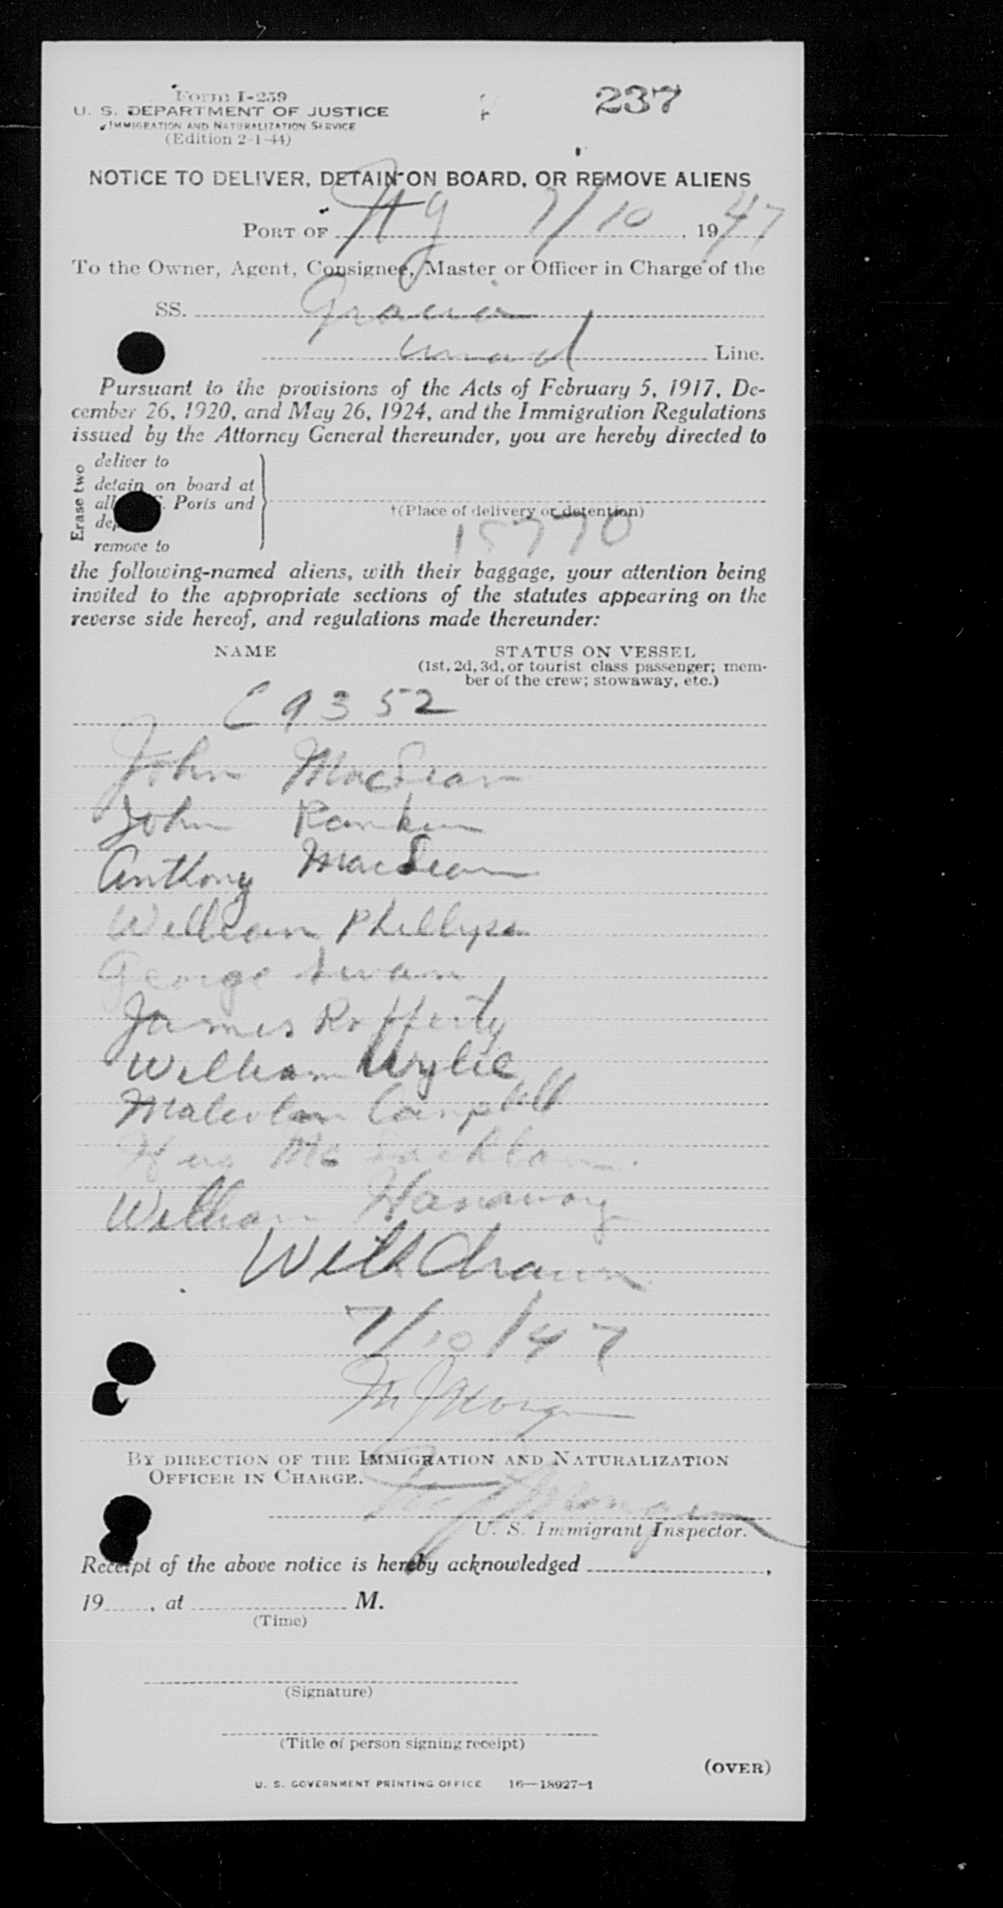 Form I-259
U. S. DEPARTMENT OF JUSTICE
IMMIGRATION AND NATURALIZATION SERVICE
(Edition 2-1-44)
237
NOTICE TO DELIVER, DETAIN ON BOARD, OR REMOVE ALIENS
PORT OF NY 7/10, 1947
To the Owner, Agent, Consignee, Master or Officer in Charge of the
SS. Gracia
Cunard Line.
Pursuant to the provisions of the Acts of February 5, 1917, De-
cember 26, 1920, and May 26, 1924, and the Immigration Regulations
issued by the Attorney General thereunder, you are hereby directed to
Erase two
deliver to
detain on board at
all Ports and
remove to
†(Place of delivery or detention)
15770
the following-named aliens, with their baggage, your attention being
invited to the appropriate sections of the statutes appearing on the
reverse side hereof, and regulations made thereunder:
NAME
STATUS ON VESSEL
(1st, 2d, 3d, or tourist class passenger; mem-
ber of the crew; stowaway, etc.)
C 9352
John MacLean
John Rankin
Anthony MacLean
William Phillips
George Swan
James Rafferty
William Wylie
Malcolm Campbell
Mc Lachlan
William Hanaway
Withdrawn
7/10/47
BY DIRECTION OF THE IMMIGRATION AND NATURALIZATION
OFFICER IN CHARGE.
U. S. Immigrant Inspector.
Receipt of the above notice is hereby acknowledged ,
19 , at M.
(Time)
(Signature)
(Title of person signing receipt)
(OVER)
U. S. GOVERNMENT PRINTING OFFICE 16—18927-1